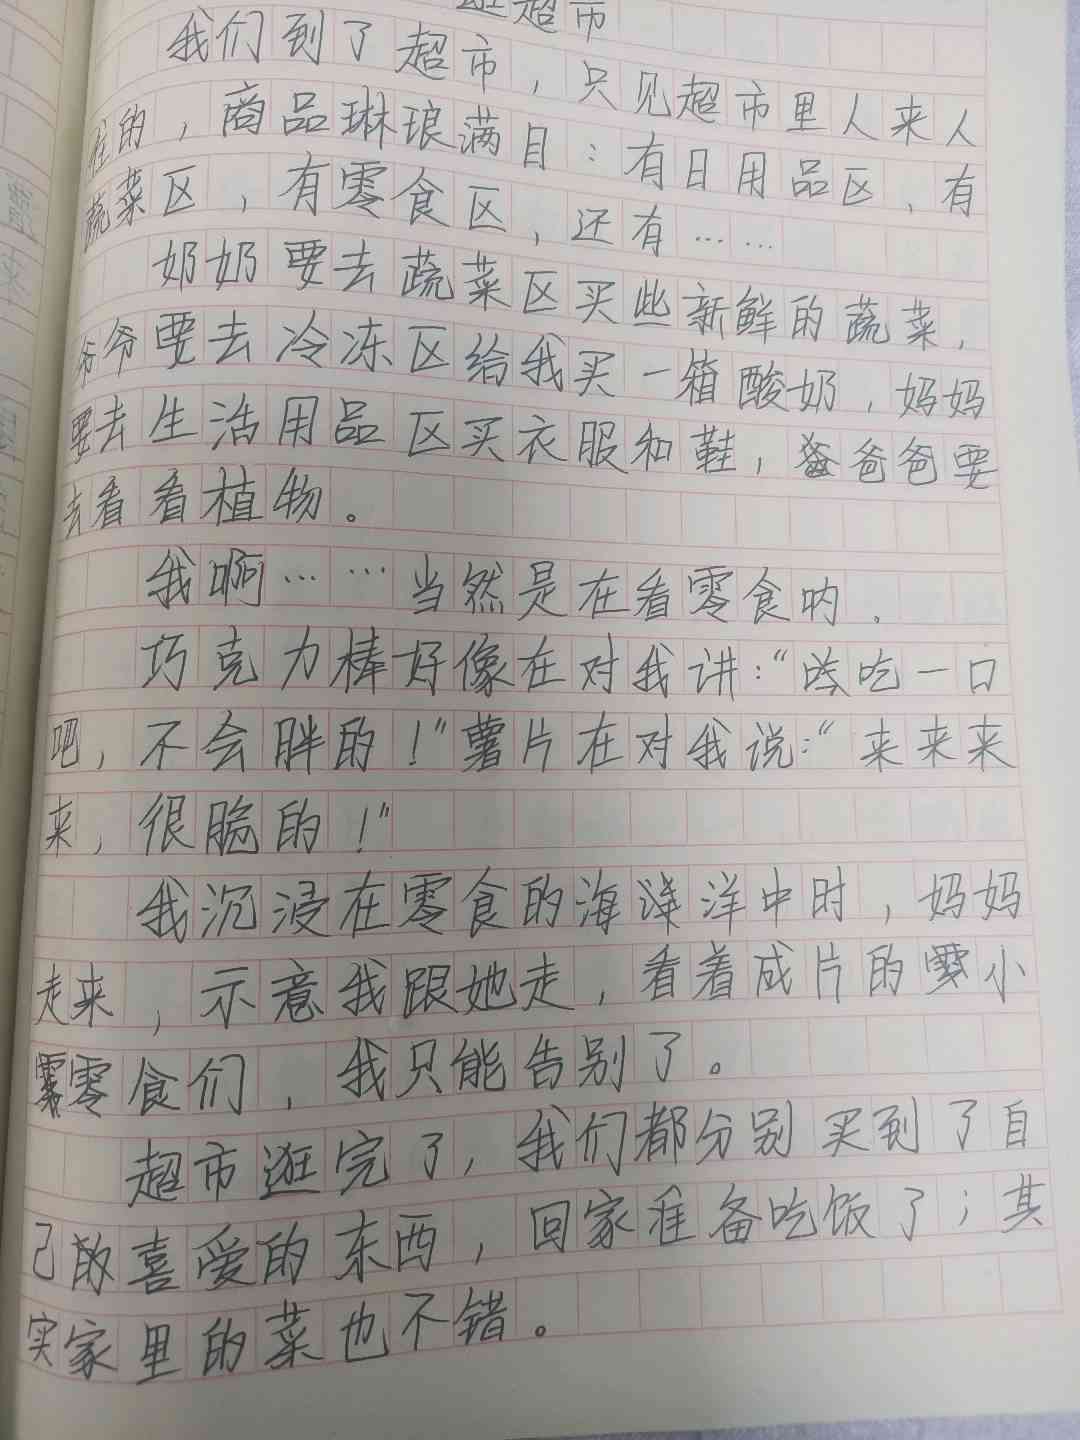 逛超市
我们到了超市，只见超市里人来人
往的，商品琳琅满目：有日用品区，有
蔬菜区，有零食区，还有……
奶奶要去蔬菜区买些新鲜的蔬菜，
爷爷要去冷冻区给我买一箱酸奶，妈妈
要去生活用品区买衣服和鞋，爸爸要
去看看植物。
我啊……当然是在看零食呐．
巧克力棒好像在对我讲：“吃一口
吧，不会胖的！”薯片在对我说：“来来来
来，很脆的！”
我沉浸在零食的海洋中时，妈妈
走来，示意我跟她走，看着成片的小
零食们，我只能告别了。
超市逛完了，我们都分别买到了自
己的喜爱的东西，回家准备吃饭了；其
实家里的菜也不错。